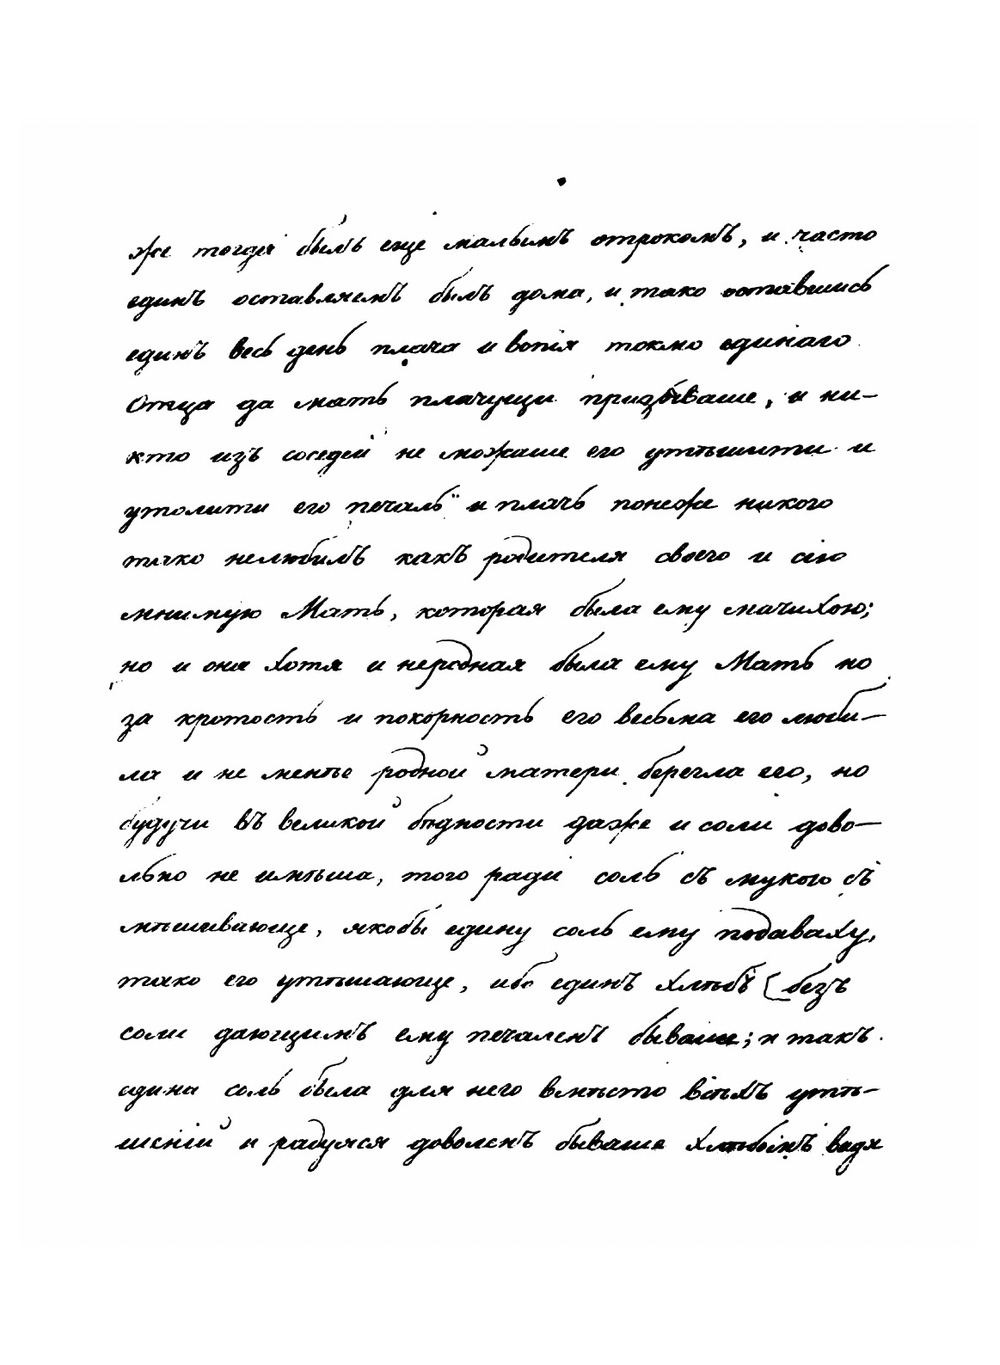 же тогда былъ еще малымъ отрокомъ, и часто
единъ оставляемъ былъ дома, и тако оставшись
единъ весь день плача и вопія токмо единаго
Отца да мать плачущи призываше, и ни-
кто изъ соседей не можаше его утѣшити и
утолити его печаль и плачь понеже никого
тако нелюбилъ какъ родителя своего и сію
мнимую Мать, которая была ему мачихою;
но и она хотя и неродная была ему Мать но
за кротость и покорность его весьма его люби-
ла и не менѣе родной матери берегла его, но
будучи въ великой бѣдности даже и соли дово-
льно не имѣша, того ради соль съ мукою съ
мѣшивающе, якобы едину соль ему подаваху,
тако его утѣшающе, ибо единъ хлѣбъ (безъ
соли дающимъ ему печаленъ бываше; и такъ
едина соль была для него вмѣсто всѣхъ утѣ-
шеній и радуяся доволенъ бываше хлѣбомъ видя